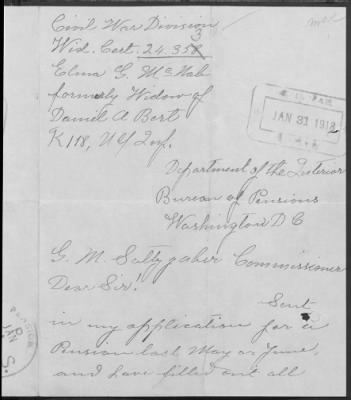 Civil War Division
3
Wid. Cert. 24.358
Elma G. McNab
formerly Widow of
Daniel A Bert
K 118, Ill Inf.
JAN 31 1912
Department of the Interior
Bureau of Pensions
Washington D C
G. M. Saltzgaber Commissioner
Dear Sir!
Sent
in my application for a
Pension last May or June,
and have filled out all